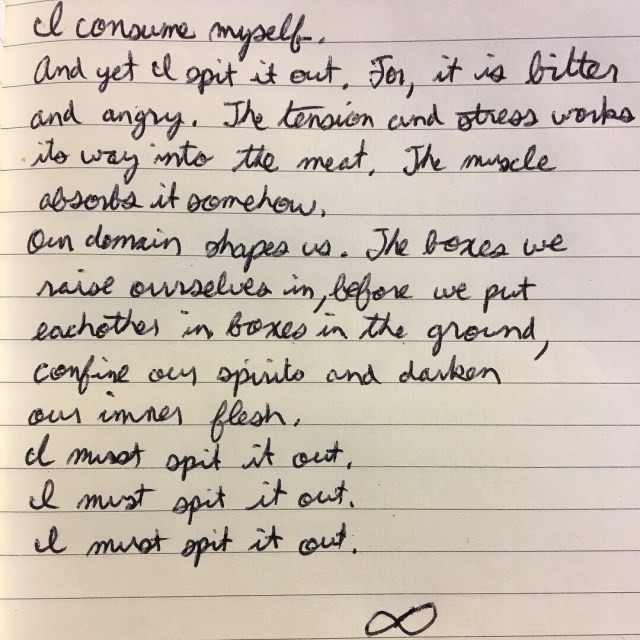 I consume myself.
And yet I spit it out. For, it is bitter
and angry. The tension and stress works
its way into the meat. The muscle
absorbs it somehow.
Our domain shapes us. The boxes we
raise ourselves in, before we put
eachother in boxes in the ground,
confine our spirits and darken
our inner flesh.
I must spit it out.
I must spit it out.
I must spit it out.
∞